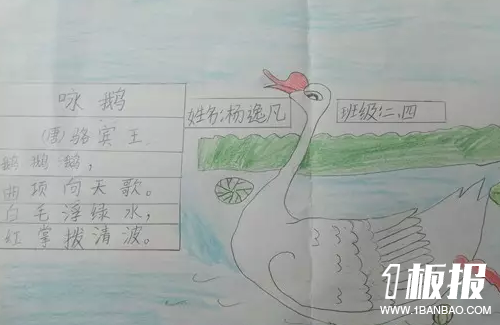 咏鹅
(唐)骆宾王
鹅鹅鹅,
曲项向天歌。
白毛浮绿水,
红掌拨清波。
姓名:杨逸凡
班级:二、四
1板报
WWW.1BANBAO.COM